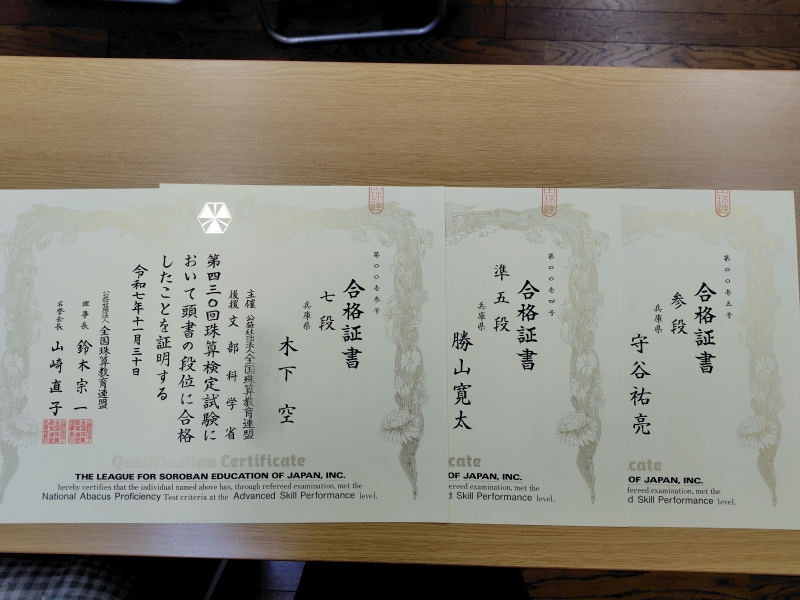 第一〇〇参号
合格証書
七段
兵庫県
木下空
主催 公益社団法人全国珠算教育連盟
後援 文部科学省
第四三〇回珠算検定試験に
おいて頭書の段位に合格
したことを証明する
令和七年十一月三十日
公益社団法人全国珠算教育連盟
理事長 鈴木宗一
名誉会長 山崎直子
Qualification Certificate
THE LEAGUE FOR SOROBAN EDUCATION OF JAPAN, INC.
hereby certifies that the individual named above has, through refereed examination, met the
National Abacus Proficiency Test criteria at the Advanced Skill Performance level.
合格証書
準五段
兵庫県
勝山寛太
cate
OF JAPAN, INC.
fereed examination, met the
d Skill Performance level.
合格証書
参段
兵庫県
守谷祐亮
cate
OF JAPAN, INC.
fereed examination, met the
d Skill Performance level.